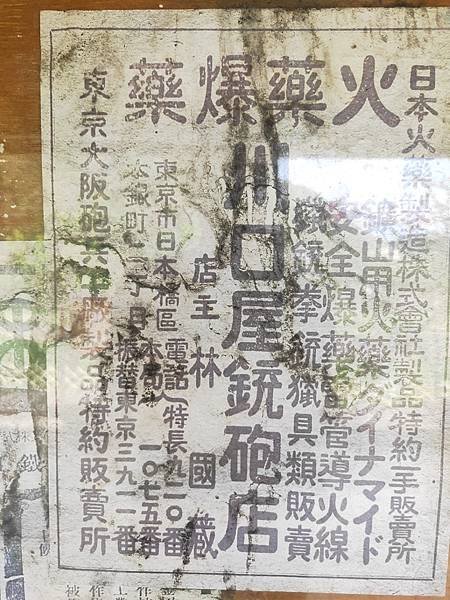 火藥爆藥
日本火藥製造株式會社製品特約一手販賣所
鑛山用火藥ダイナマイド
安全爆藥雷管導火線
銃拳銃獵具類販賣
川口屋銃砲店
店主 林 國藏
東京市日本橋區
本銀町二丁目
電話 特長九一〇番
本局 一〇七五番
振替東京三九一一番
東京大阪砲兵工廠製品特約販賣所